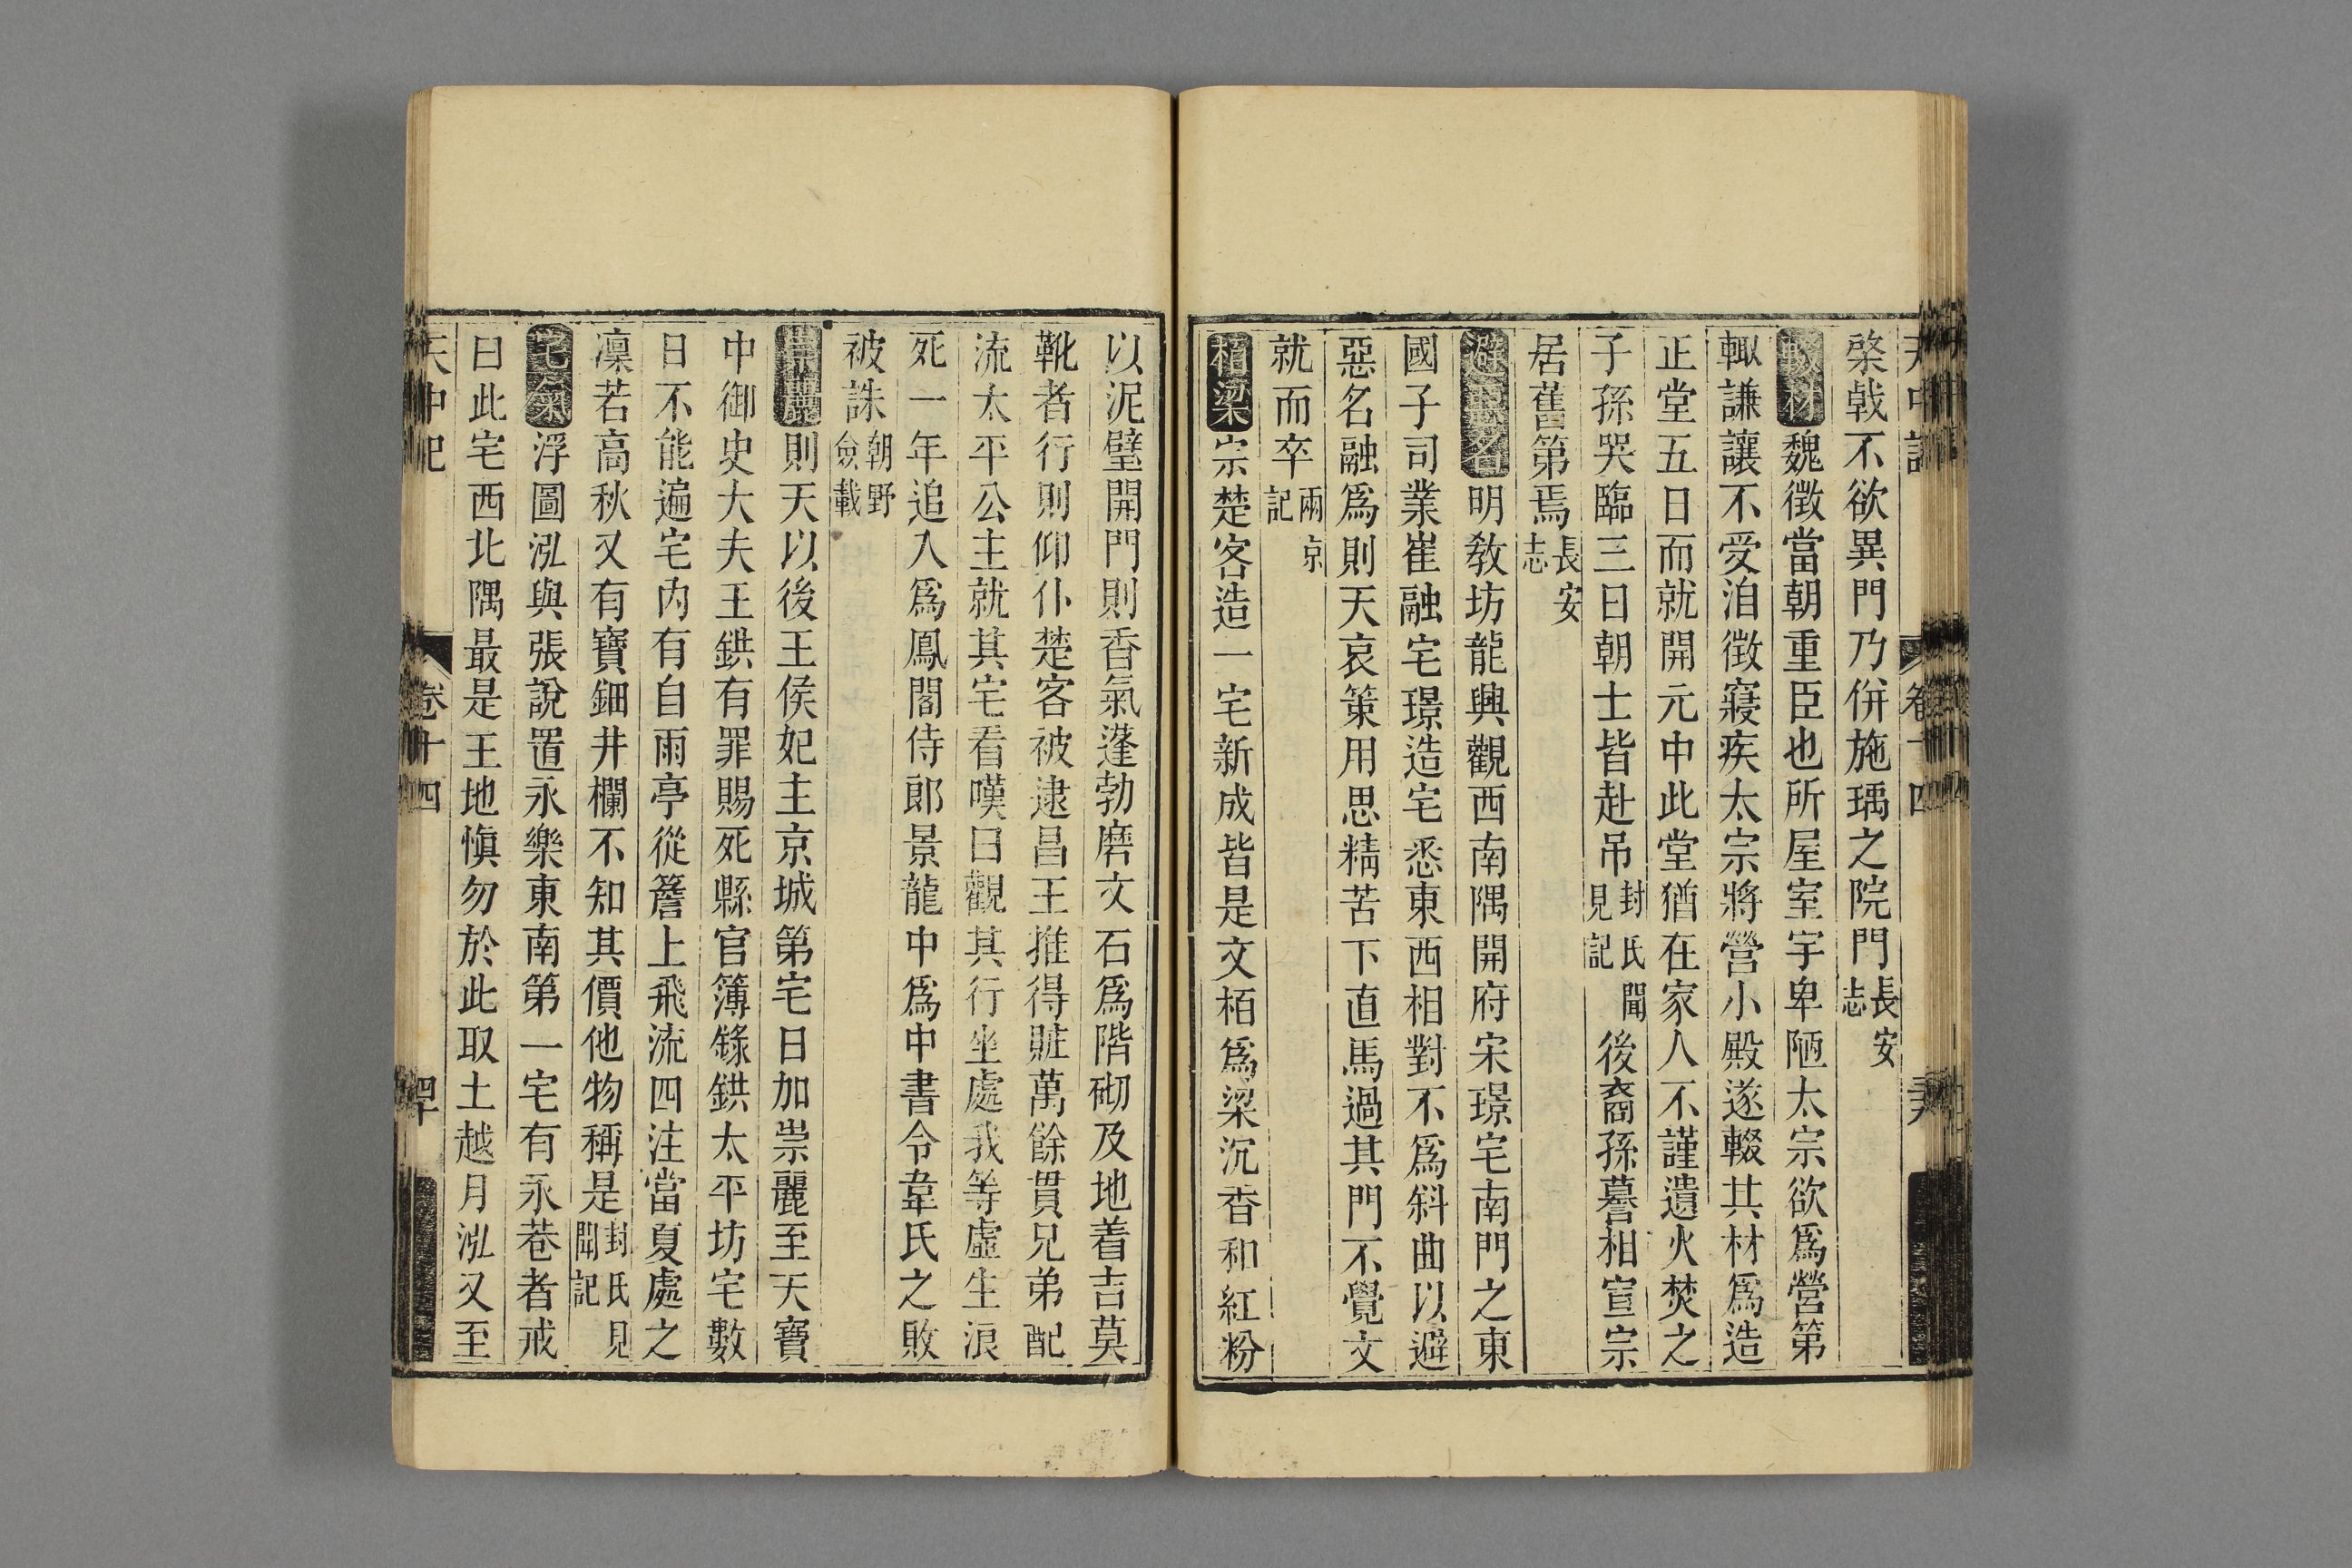 天中記 卷十四
棨戟不欲異門乃併施瑀之院門長安志
輟材魏徵當朝重臣也所屋室宇卑陋太宗欲爲營第
輙謙讓不受洎徵寢疾太宗將營小殿遂輟其材爲造
正堂五日而就開元中此堂猶在家人不謹遺火焚之
子孫哭臨三日朝士皆赴吊封氏聞見記後裔孫謩相宣宗
居舊第焉長安志
避惡名明敎坊龍興觀西南隅開府宋璟宅南門之東
國子司業崔融宅璟造宅悉東西相對不爲斜曲以避
惡名融爲則天哀策用思精苦下直馬過其門不覺文
就而卒兩京記
栢梁宗楚客造一宅新成皆是文栢爲梁沉香和紅粉
以泥壁開門則香氣蓬勃磨文石爲階砌及地着吉莫
靴者行則仰仆楚客被逮昌王推得贓萬餘貫兄弟配
流太平公主就其宅看嘆曰觀其行坐處我等虛生浪
死一年追入爲鳳閣侍郎景龍中爲中書令韋氏之敗
被誅朝野僉載
崇麗則天以後王侯妃主京城第宅日加崇麗至天寶
中御史大夫王鉷有罪賜死縣官簿錄鉷太平坊宅數
日不能遍宅內有自雨亭從簷上飛流四注當夏處之
凜若高秋又有寶鈿井欄不知其價他物稱是封氏見聞記
宅氣浮圖泓與張說置永樂東南第一宅有永巷者戒
曰此宅西北隅最是王地愼勿於此取土越月泓又至
天中記 卷十四